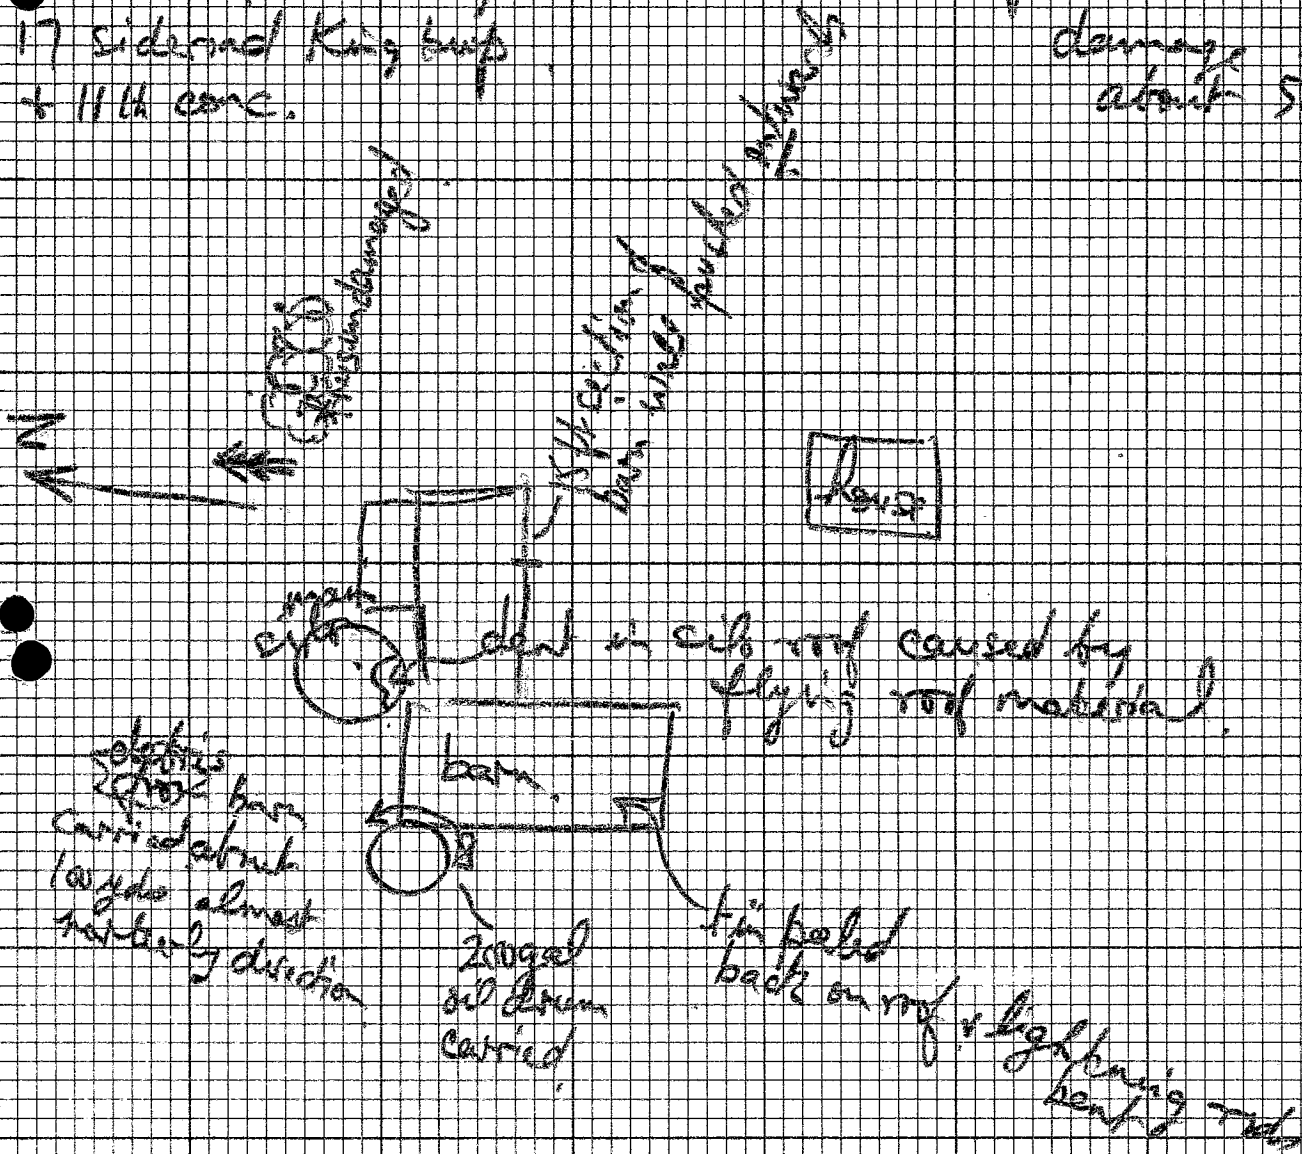 17 sideroad King twp.
+ 11th conc.
damage
about 5
trees undamaged
N
15 ft section of
barn wall pushed outward
house
man
silo
dent in silo roof caused by
flying roof material.
barn
debris
from barn
carried about
100 yds almost
northerly direction
200 gal
oil drum
carried
tin peeled
back on roof & lightning rods
bent